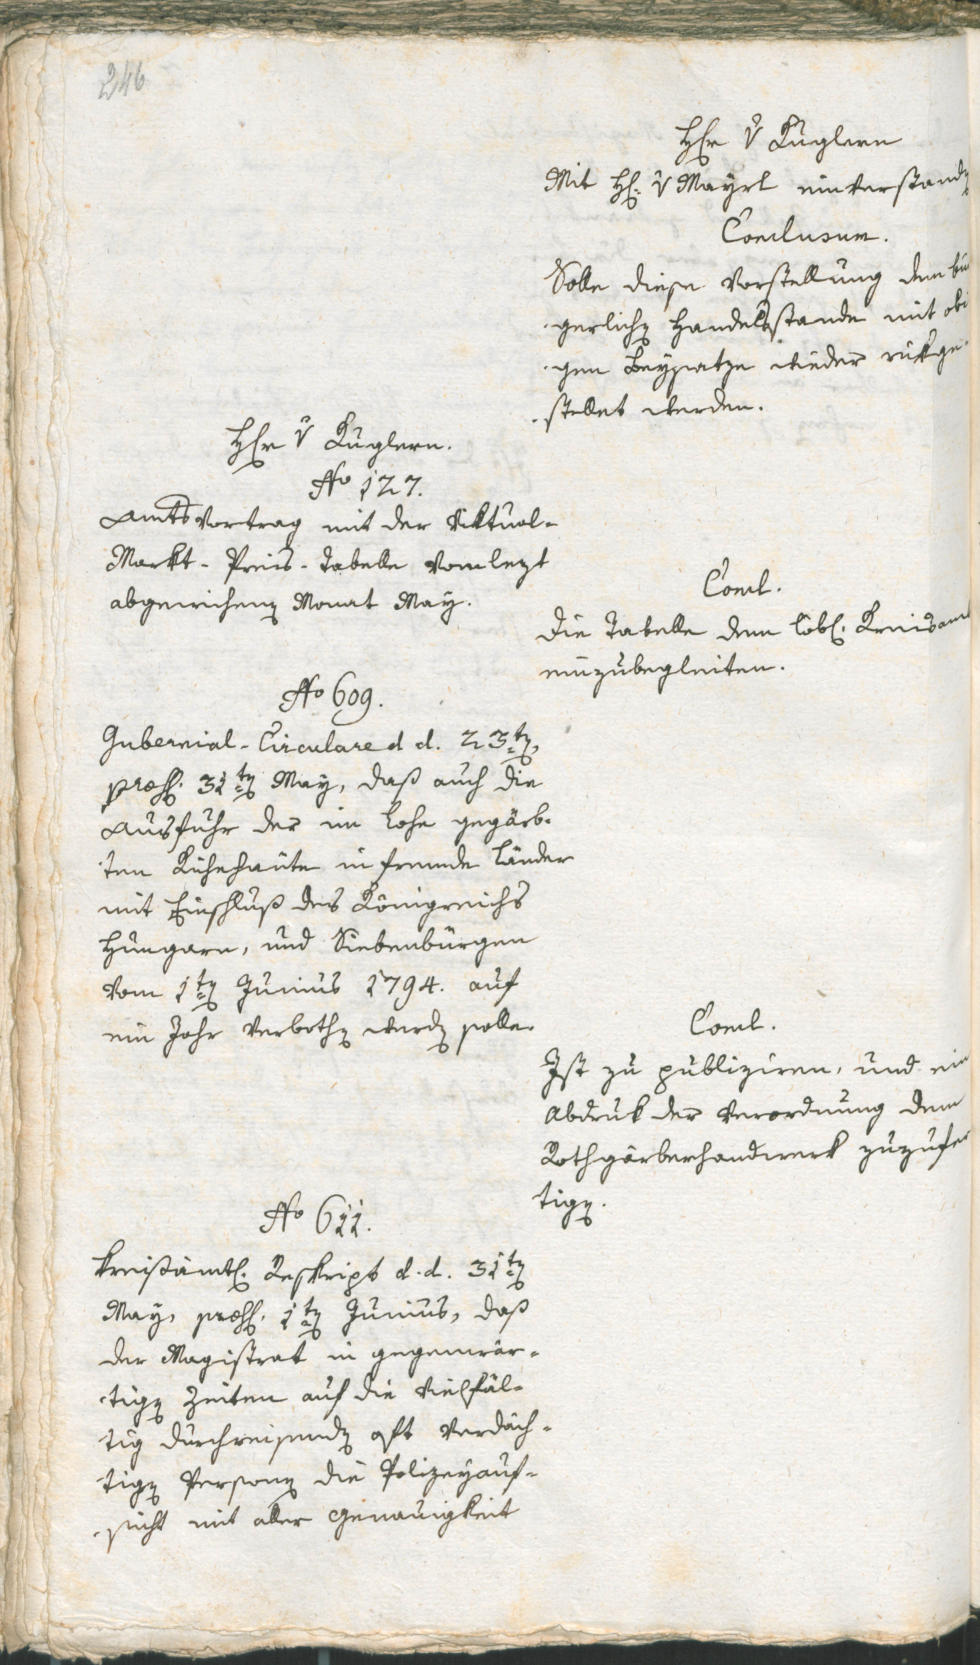 246
Hr v Kuglern
Mit H. v Mayrl einverstand
Conclusum.
Solle diese Vorstellung dem bür
gerlich Handelsstande mit obi
gen Beysatze wieder rükge-
stellet werden.
Hr v Kuglern.
No 127.
Amtsvortrag mit der Viktual-
Markt-Preis-Tabelle vom lezt
abgewichen Monat May.
Concl.
Die Tabelle dem löbl. Kreisamt
einzubegleiten.
No 609.
Gubernial-Circulare d d. 23t.
præs. 31t May, daß auch die
Ausfuhr der im Lohe gegärb-
ten Kühehäute in fremde Länder
mit Einschluß des Königreichs
Hungarn, und Siebenbürgen
vom 1t Junius 1794. auf
ein Jahr verboth werd solle.
Concl.
Ist zu publiziren, und ein
Abdruk der Verordnung dem
Rothgärberhandwerk zuzufer
tig.
No 611.
Kreisämtl. Reskript d. d. 31t
May, præs. 1t Junius, daß
der Magistrat in gegenwär-
tig Zeiten auf die vielfäl-
tig durchreisend oft verdäch-
tig Person die Polizeyauf-
sicht mit aller Genauigkeit